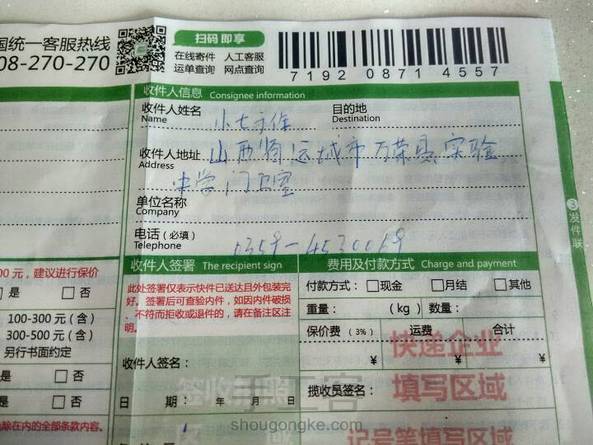 国统一客服热线
08-270-270
扫码即享
在线寄件 人工客服
运单查询 网点查询
7192 0871 4557
收件人信息 Consignee information
收件人姓名
Name
目的地
Destination
收件人地址 山西省运城市万荣县实验
Address
中学门卫室
单位名称
Company
电话(必填)
Telephone
0359-4530019
收件人签署 The recipient sign
费用及付款方式 Charge and payment
此处签署仅表示快件已送达且外包装完
好。签署后可查验内件,如因内件破损
、不符而拒收或退件的,请在备注区注
明。
付款方式:□现金 □月结 □其他
重量: (kg) 数量:
保价费(3%) 运费 合计
¥ ¥ ¥
收件人签名:
揽收员签名:
日期: 年 月 日
00元,建议进行保价
是 □否
100-300元(含)
300-500元(含)
另行书面约定
是 □否
是 □否
除在内的全部条款内容。
快递企业
填写区域
记号笔填写区域
③发件联
手工客
shougongke.com